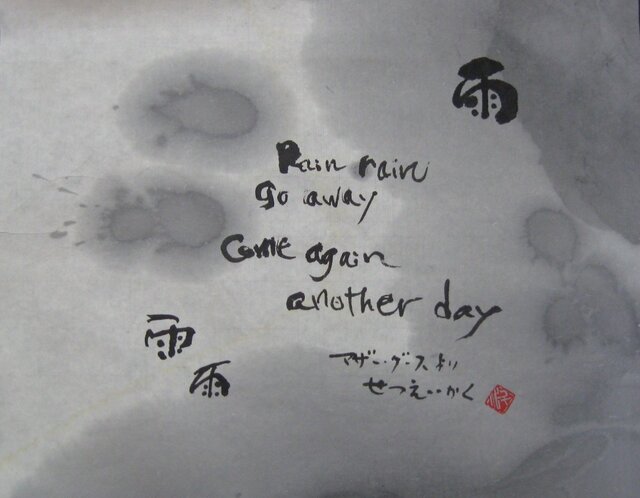 雨
Rain rain
go away
Come again
another day
雨
雨
マザーグースより
せつえいかく